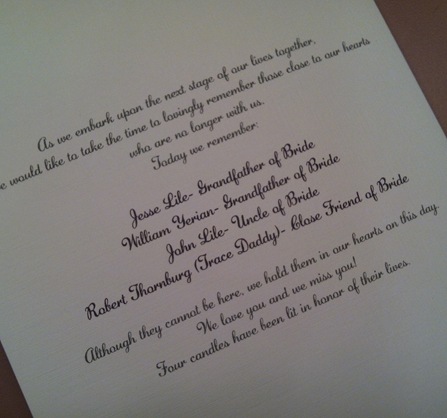 As we embark upon the next stage of our lives together,
would like to take the time to lovingly remember those close to our hearts
who are no longer with us.
Today we remember:
Jesse Lile- Grandfather of Bride
William Yerian- Grandfather of Bride
John Lile- Uncle of Bride
Robert Thornburg (Trace Daddy)- Close Friend of Bride
Although they cannot be here, we hold them in our hearts on this day.
We love you and we miss you!
Four candles have been lit in honor of their lives.